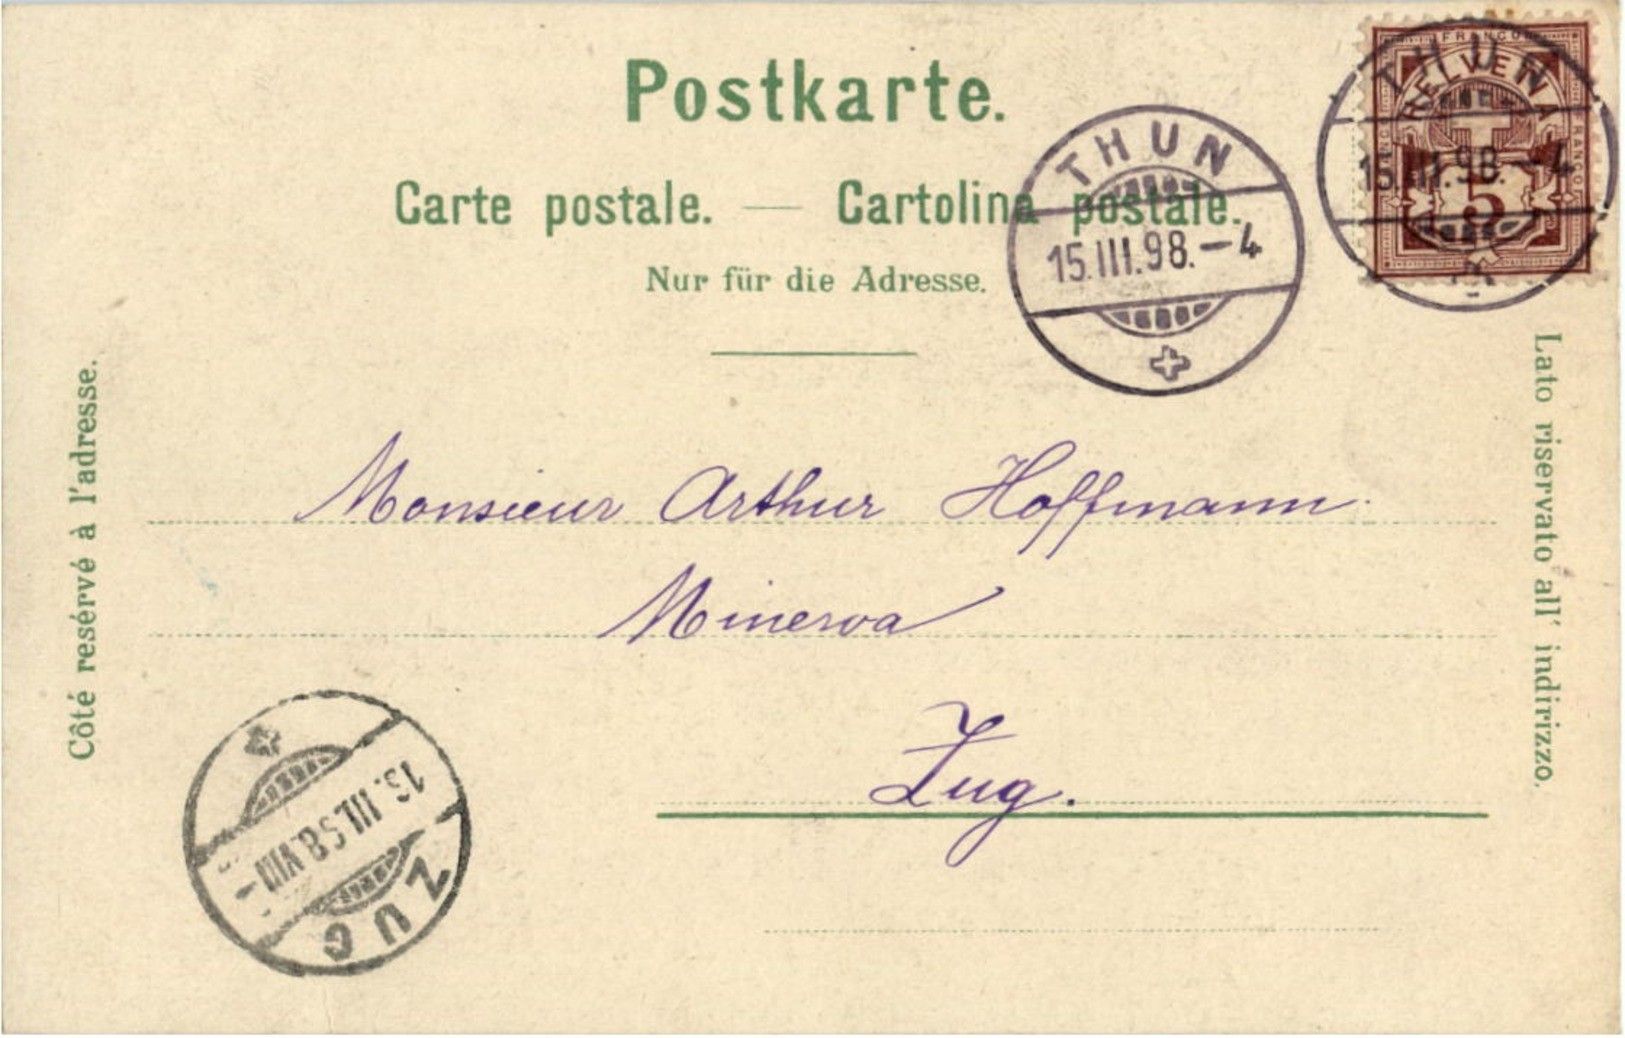 Postkarte.
Carte postale. — Cartolina postale.
Nur für die Adresse.
FRANCO
HELVETIA
FRANCO
5
THUN
15.III.98.-4
THUN
15.III.98.-4
Côté resérvé à l'adresse.
Lato riservato all' indirizzo.
Monsieur Arthur Hoffmann.
Minerva
Zug.
ZUG
15.III.98.VIII-